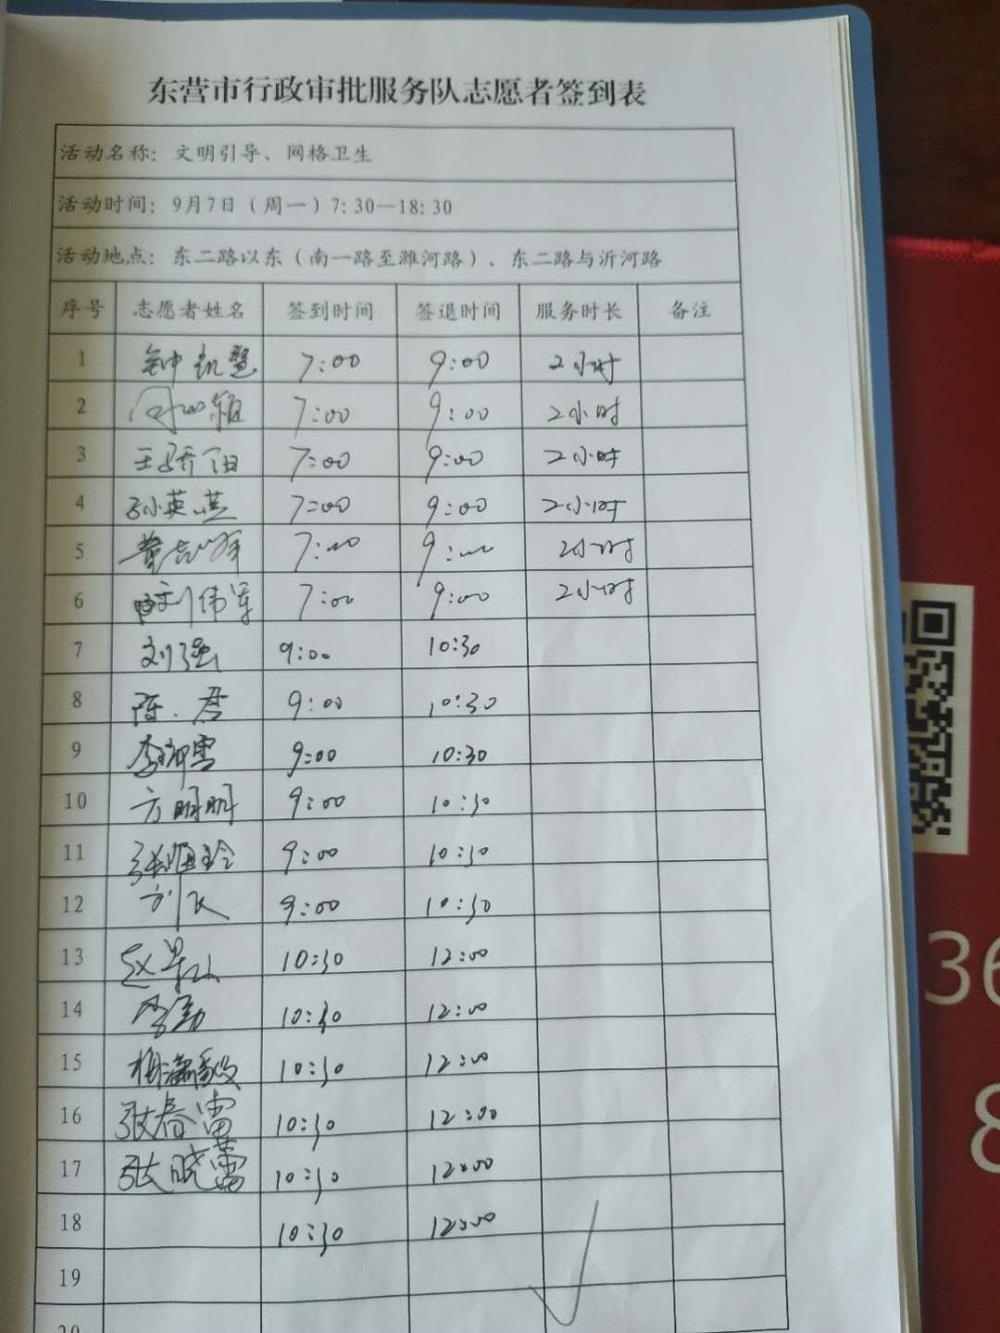 东营市行政审批服务队志愿者签到表
活动名称：文明引导、网格卫生
活动时间：9月7日（周一）7:30—18:30
活动地点：东二路以东（南一路至潍河路）、东二路与沂河路
序号 志愿者姓名 签到时间 签退时间 服务时长 备注
1 7:00 9:00 2小时
2 7:00 9:00 2小时
3 7:00 9:00 2小时
4 孙英 7:00 9:00 2小时
5 7:00 9:00 2小时
6 刘伟军 7:00 9:00 2小时
7 刘强 9:00 10:30
8 陈君 9:00 10:30
9 9:00 10:30
10 方明明 9:00 10:30
11 9:00 10:30
12 9:00 10:30
13 10:30 12:00
14 李勐 10:30 12:00
15 10:30 12:00
16 张春雷 10:30 12:00
17 张晓蕾 10:30 12:00
18 10:30 12:00
19
20
36
8